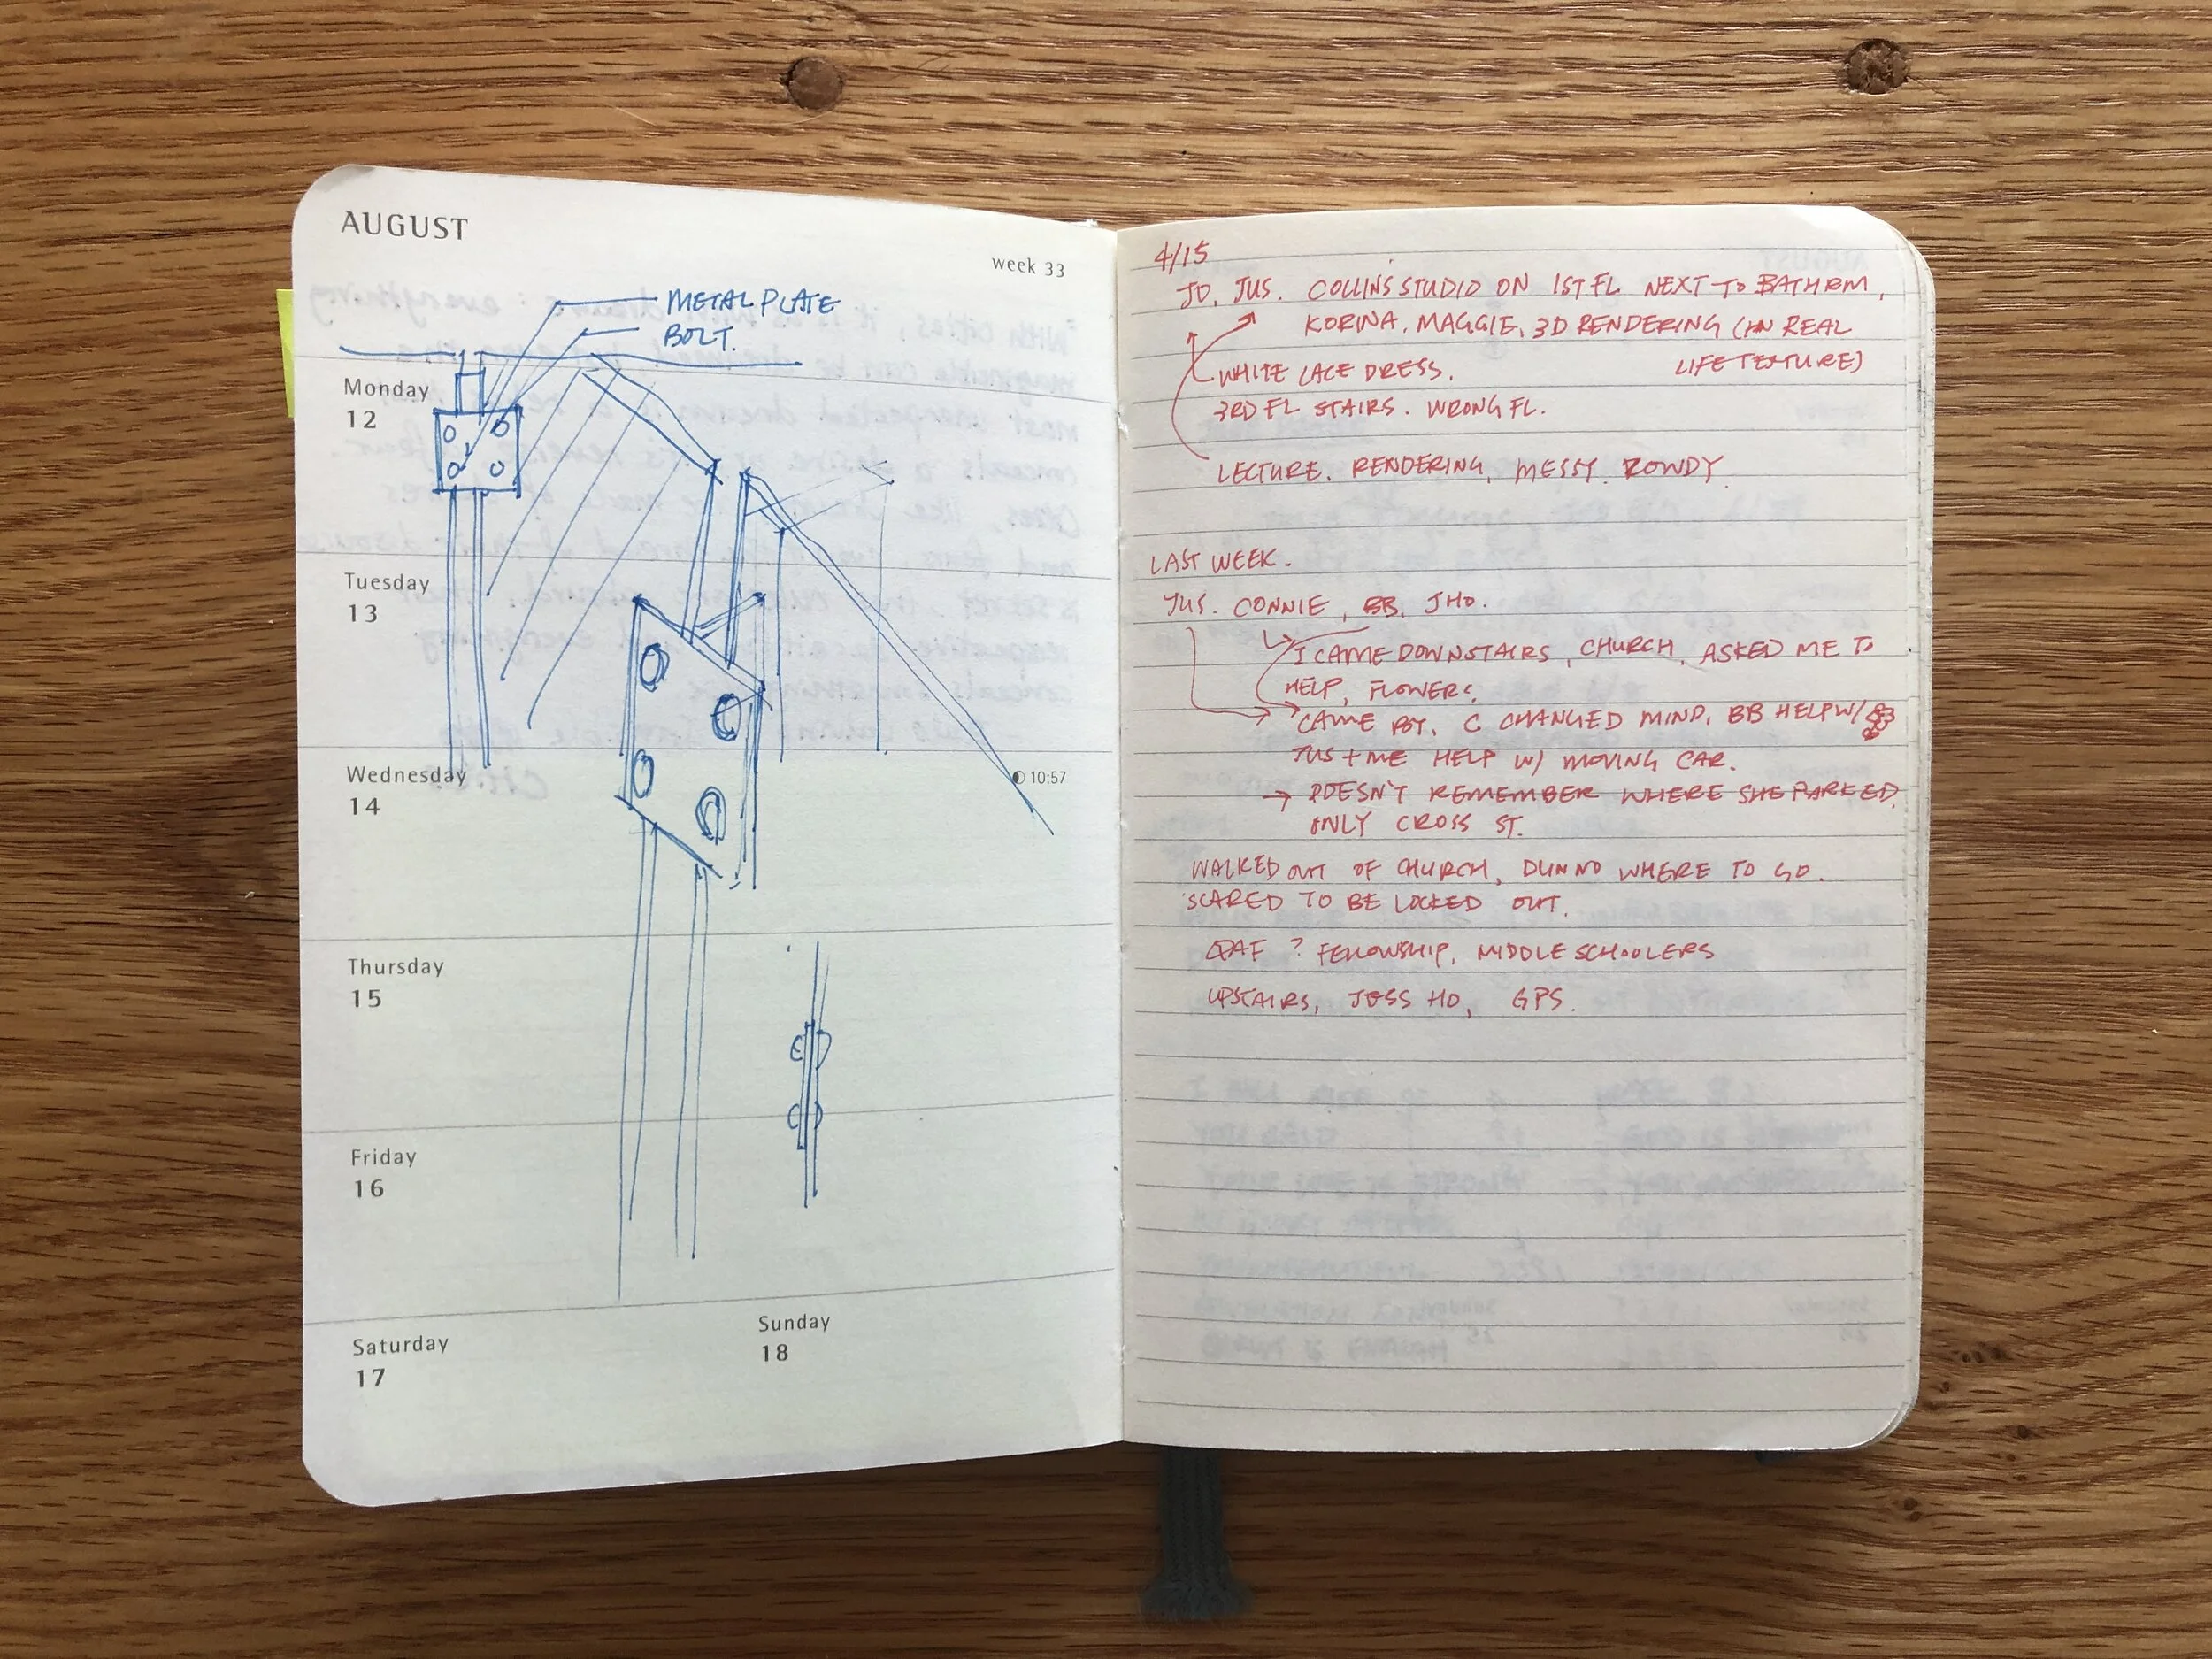 AUGUST
week 33
METAL PLATE
BOLT.
Monday
12
Tuesday
13
Wednesday
14
10:57
Thursday
15
Friday
16
Saturday
17
Sunday
18
4/15
JO, JUS. COLLINS STUDIO ON 1ST FL NEXT TO BATHRM,
KORINA, MAGGIE, 3D RENDERING (IN REAL
LIFE TEXTURE)
WHITE LACE DRESS.
3RD FL STAIRS. WRONG FL.
LECTURE. RENDERING, MESSY. ROWDY
LAST WEEK.
JUS. CONNIE, BB, JHO.
I CAME DOWNSTAIRS, CHURCH, ASKED ME TO
HELP, FLOWERS.
CAME BY. C CHANGED MIND, BB HELP W/
JUS + ME HELP W/ MOVING CAR.
→ DOESN'T REMEMBER WHERE SHE PARKED.
ONLY CROSS ST.
WALKED OUT OF CHURCH, DUNNO WHERE TO GO.
SCARED TO BE LOCKED OUT.
? FELLOWSHIP, MIDDLE SCHOOLERS
UPSTAIRS, JESS HO, GPS.